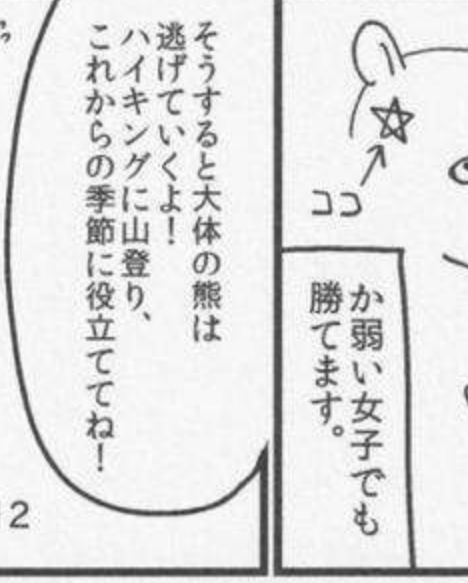 ココ
か弱い女子でも
勝てます。
そうすると大体の熊は
逃げていくよ！
ハイキングに山登り、
これからの季節に役立ててね！
2